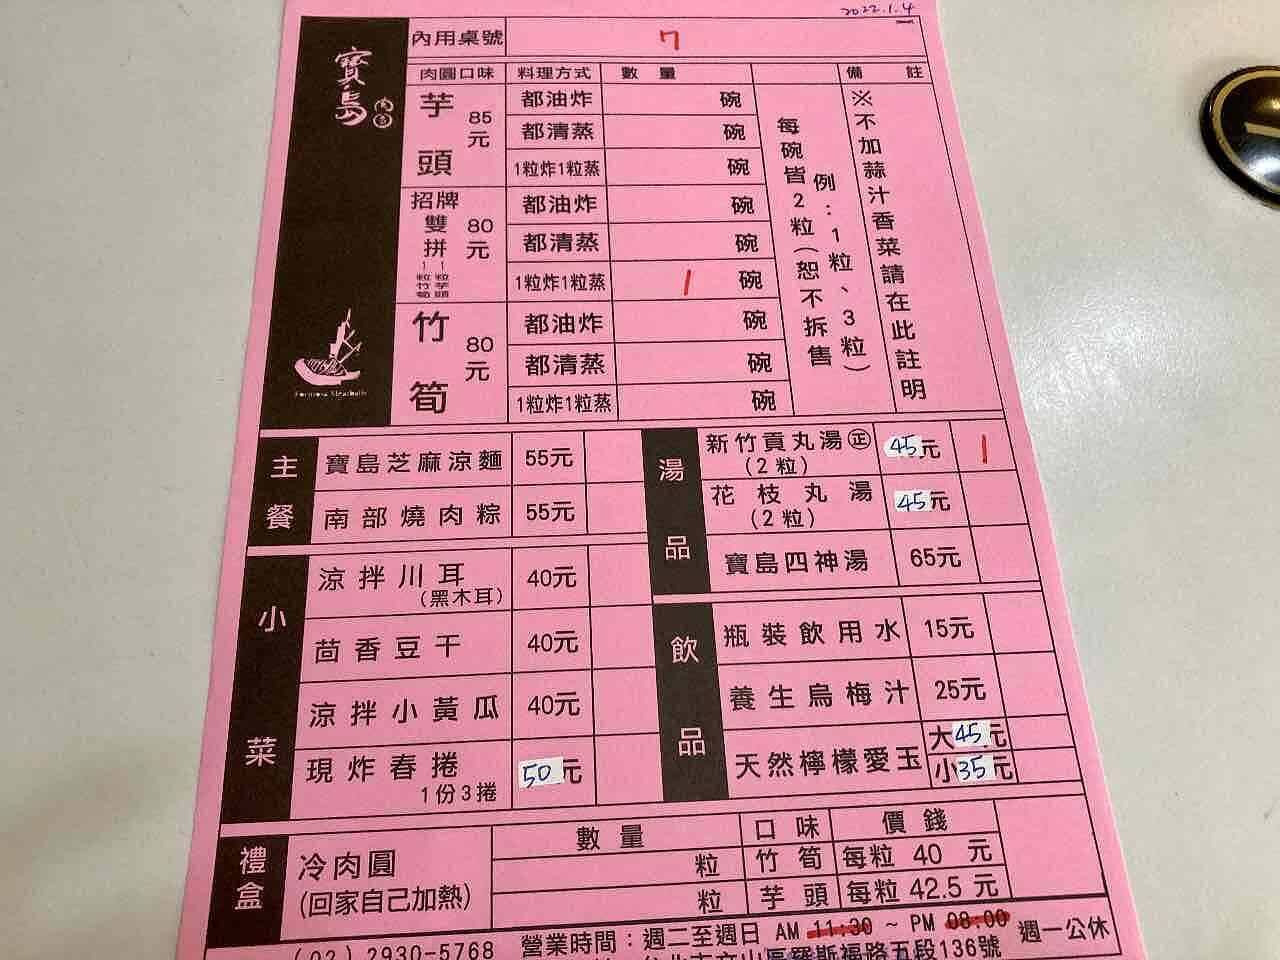 2022.1.4
寶島肉圓
Formosa Meatballs
內用桌號 7
肉圓口味 料理方式 數量 備註
芋頭 85元
都油炸 碗
都清蒸 碗
1粒炸1粒蒸 碗
招牌雙拼 80元
1粒竹筍 1粒芋頭
都油炸 碗
都清蒸 碗
1粒炸1粒蒸 1 碗
竹筍 80元
都油炸 碗
都清蒸 碗
1粒炸1粒蒸 碗
每碗皆2粒(恕不拆售
例:1粒、3粒)
※不加蒜汁香菜請在此註明
主餐
寶島芝麻涼麵 55元
南部燒肉粽 55元
小菜
涼拌川耳 40元
(黑木耳)
茴香豆干 40元
涼拌小黃瓜 40元
現炸春捲 50元
1份3捲
湯品
新竹貢丸湯㊣ 45元 1
(2粒)
花枝丸湯 45元
(2粒)
寶島四神湯 65元
飲品
瓶裝飲用水 15元
養生烏梅汁 25元
天然檸檬愛玉 大45元
小35元
禮盒
冷肉圓
(回家自己加熱)
數量 口味 價錢
粒 竹筍 每粒 40 元
粒 芋頭 每粒 42.5 元
(02) 2930-5768 營業時間:週二至週日 AM 11:30 ~ PM 08:00 週一公休
台北市文山區羅斯福路五段136號